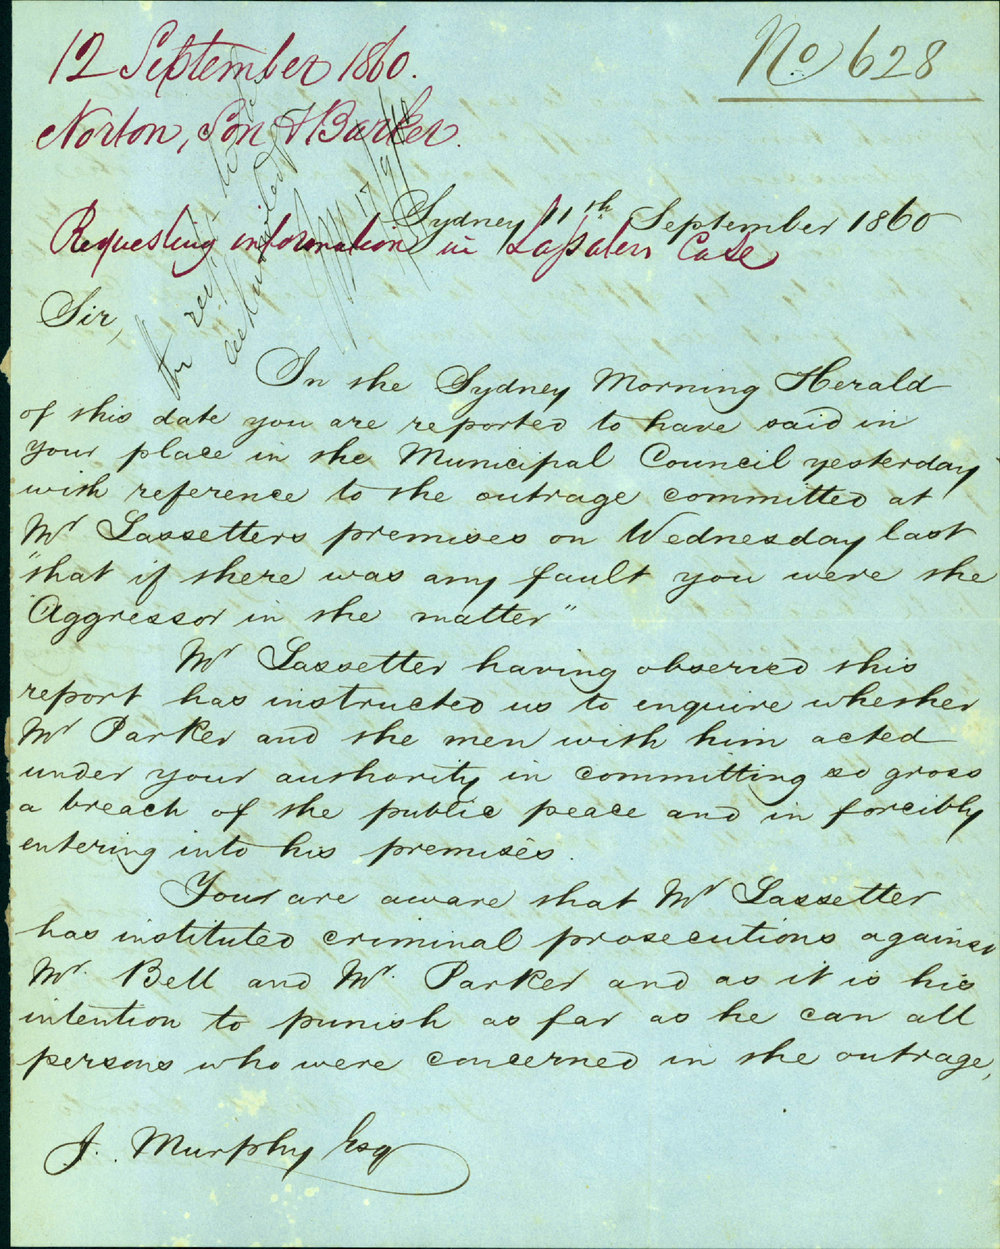 12 September 1860.
No. 628
Norton, Son & Barker.
Sydney 11th September 1860
Requesting information in Lassetters Case
Sir,
In the Sydney Morning Herald
of this date you are reported to have said in
your place in the Municipal Council yesterday
with reference to the outrage committed at
Mr Lassetters premises on Wednesday last
"that if there was any fault you were the
"Aggressor in the matter"
Mr Lassetter having observed this
report has instructed us to enquire whether
Mr Parker and the men with him acted
under your authority in committing so gross
a breach of the public peace and in forcibly
entering into his premises.
Your are aware that Mr Lassetter
has instituted criminal prosecutions against
Mr. Bell and Mr. Parker and as it is his
intention to punish as far as he can all
persons who were concerned in the outrage,
J. Murphy Esq